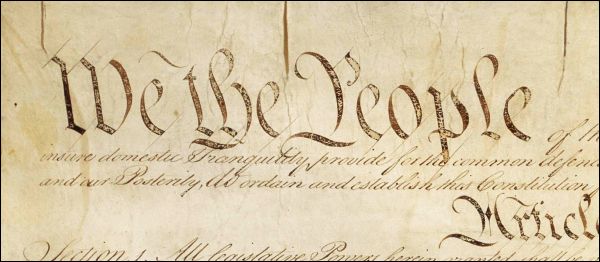 We the People
of th
insure domestic Tranquility, provide for the common defence
and our Posterity, do ordain and establish this Constitution
Article
Section 1. All legislative Powers herein granted shall be